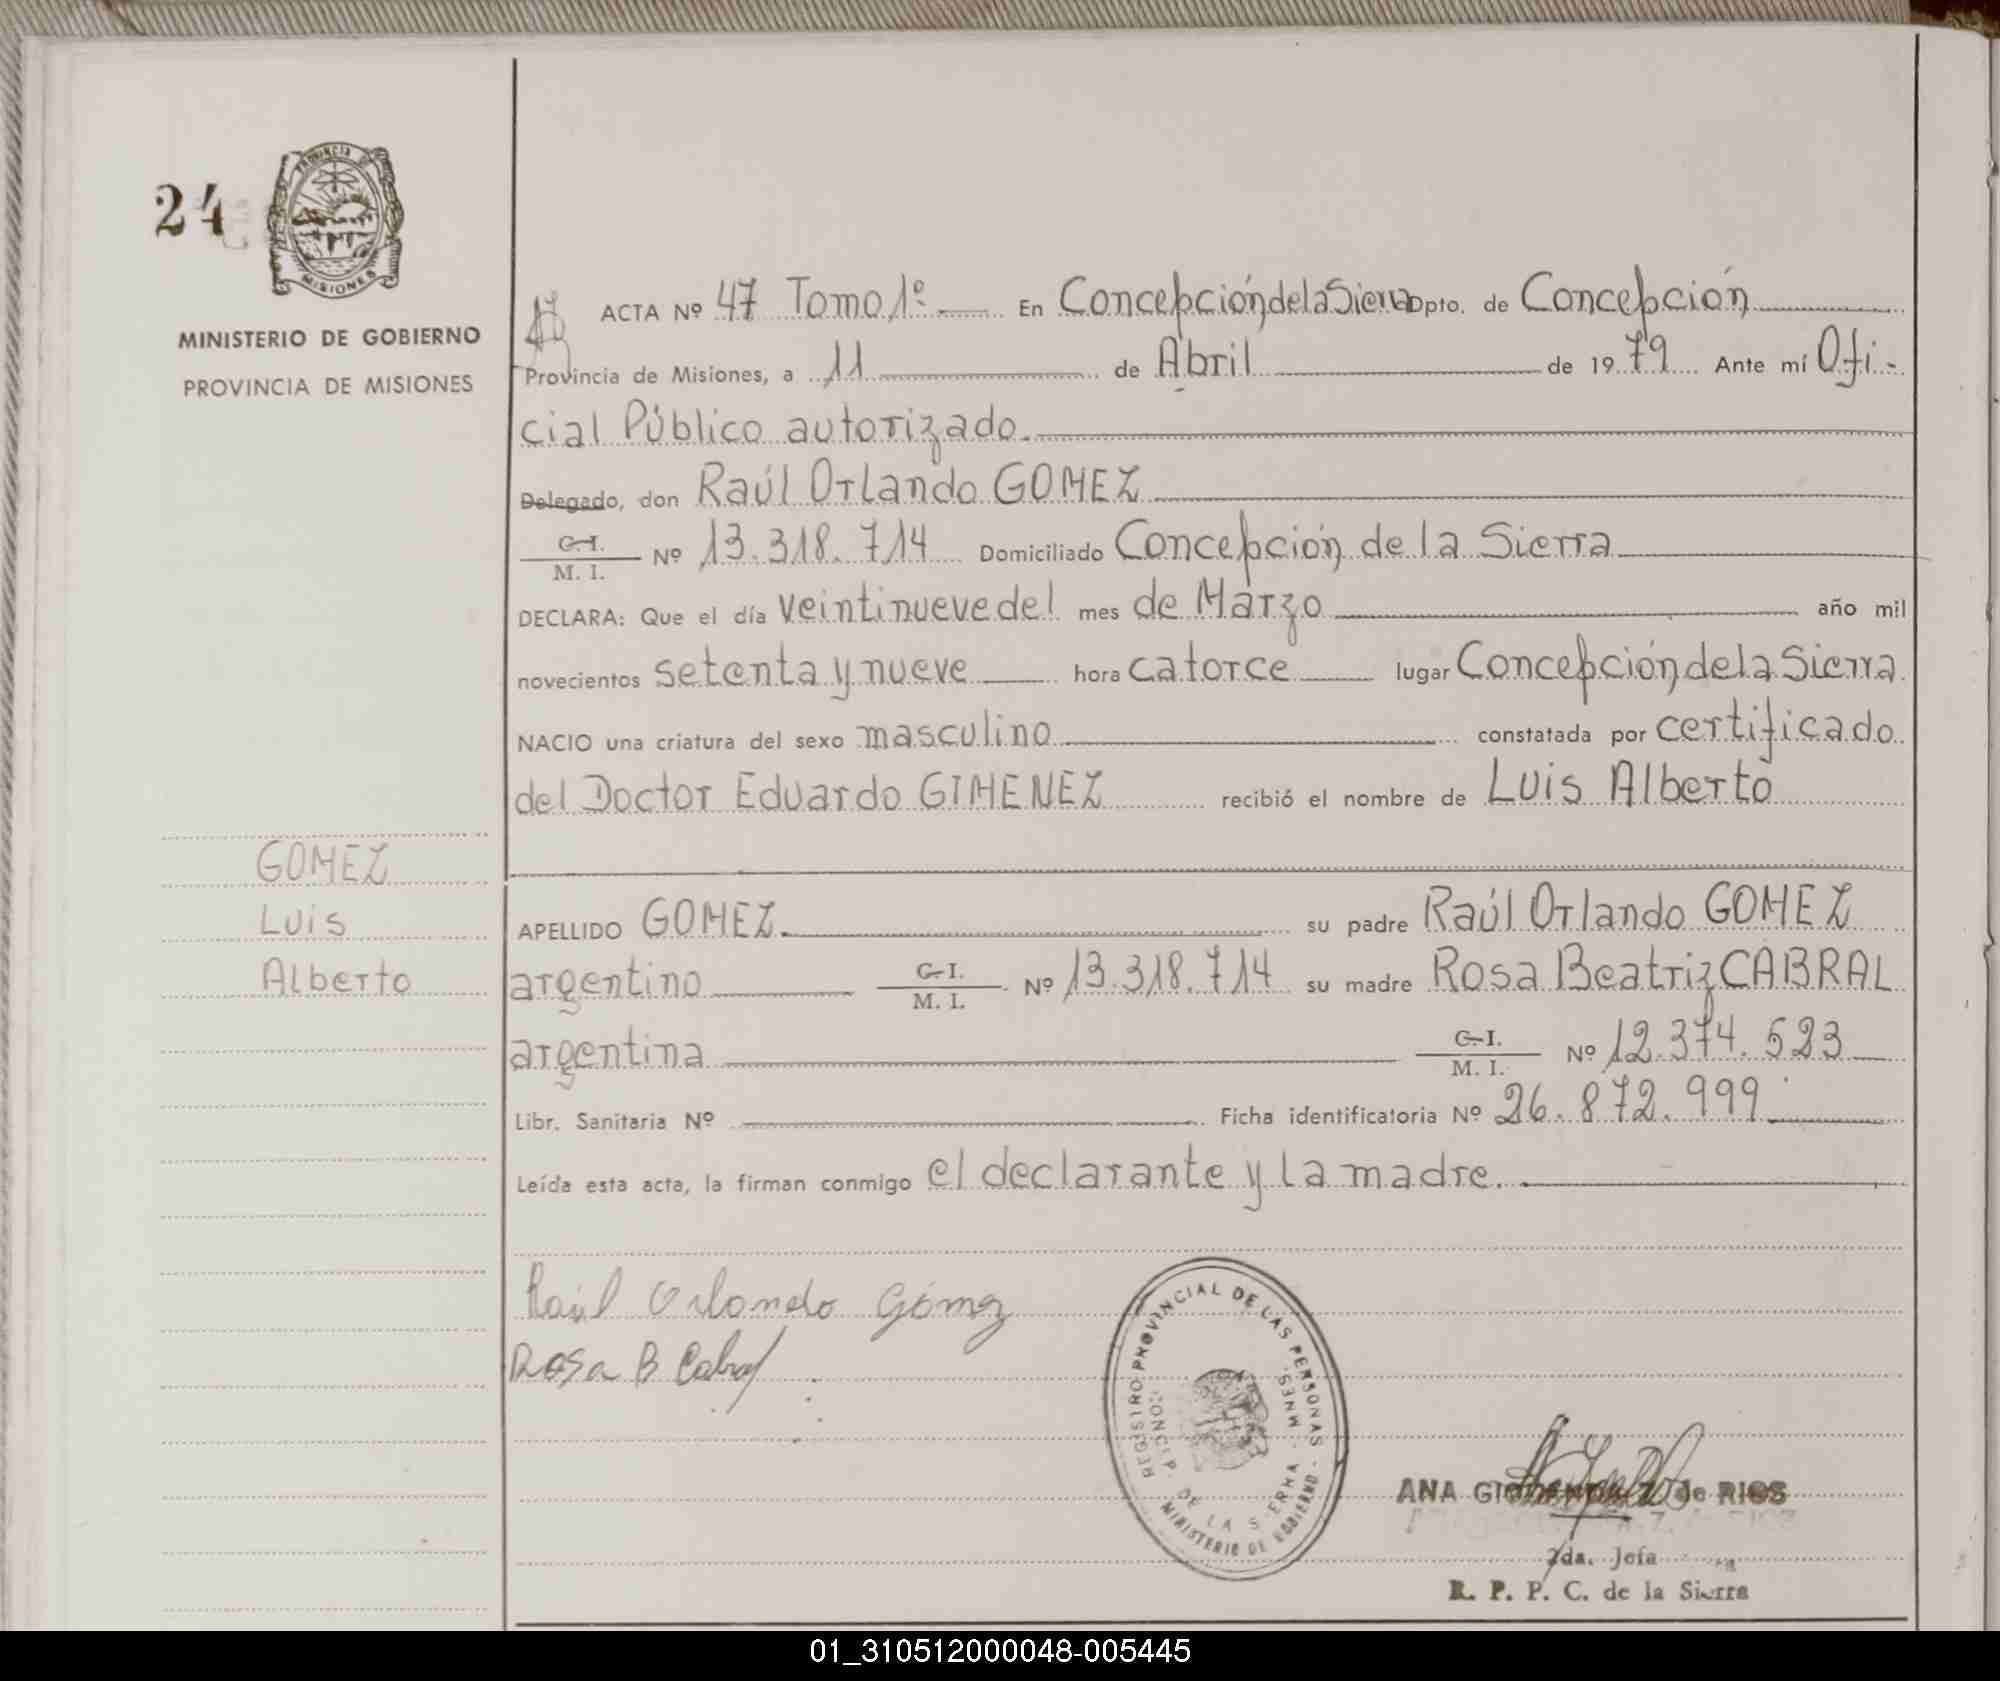 24
PROVINCIA DE
MISIONES
MINISTERIO DE GOBIERNO
PROVINCIA DE MISIONES
ACTA Nº 47 Tomo 1º. En Concepción de la Sierra Dpto. de Concepción
Provincia de Misiones, a 11 de Abril de 1979 Ante mí Ofi-
cial Público autorizado.
Delegado, don Raúl Orlando GOMEZ
C. I.
M. I. Nº 13.318.714 Domiciliado Concepción de la Sierra
DECLARA: Que el día veintinueve del mes de Marzo año mil
novecientos setenta y nueve hora catorce lugar Concepción de la Sierra
NACIO una criatura del sexo masculino constatada por certificado
del Doctor Eduardo GIMENEZ recibió el nombre de Luis Alberto
GOMEZ
Luis
Alberto
APELLIDO GOMEZ. su padre Raúl Orlando GOMEZ
argentino C. I. M. I. Nº 13.318.714 su madre Rosa Beatriz CABRAL
argentina C. I. M. I. Nº 12.374.523
Libr. Sanitaria Nº Ficha identificatoria Nº 26.872.999
Leída esta acta, la firman conmigo el declarante y la madre.
Raúl Orlando Gómez
Rosa B Cabral
REGISTRO PROVINCIAL DE LAS PERSONAS
MINISTERIO DE GOBIERNO
CONCEP. DE LA SIERRA MNES.
ANA Z. de RIOS
2da. Jefa
R. P. P. C. de la Sierra
01_310512000048-005445